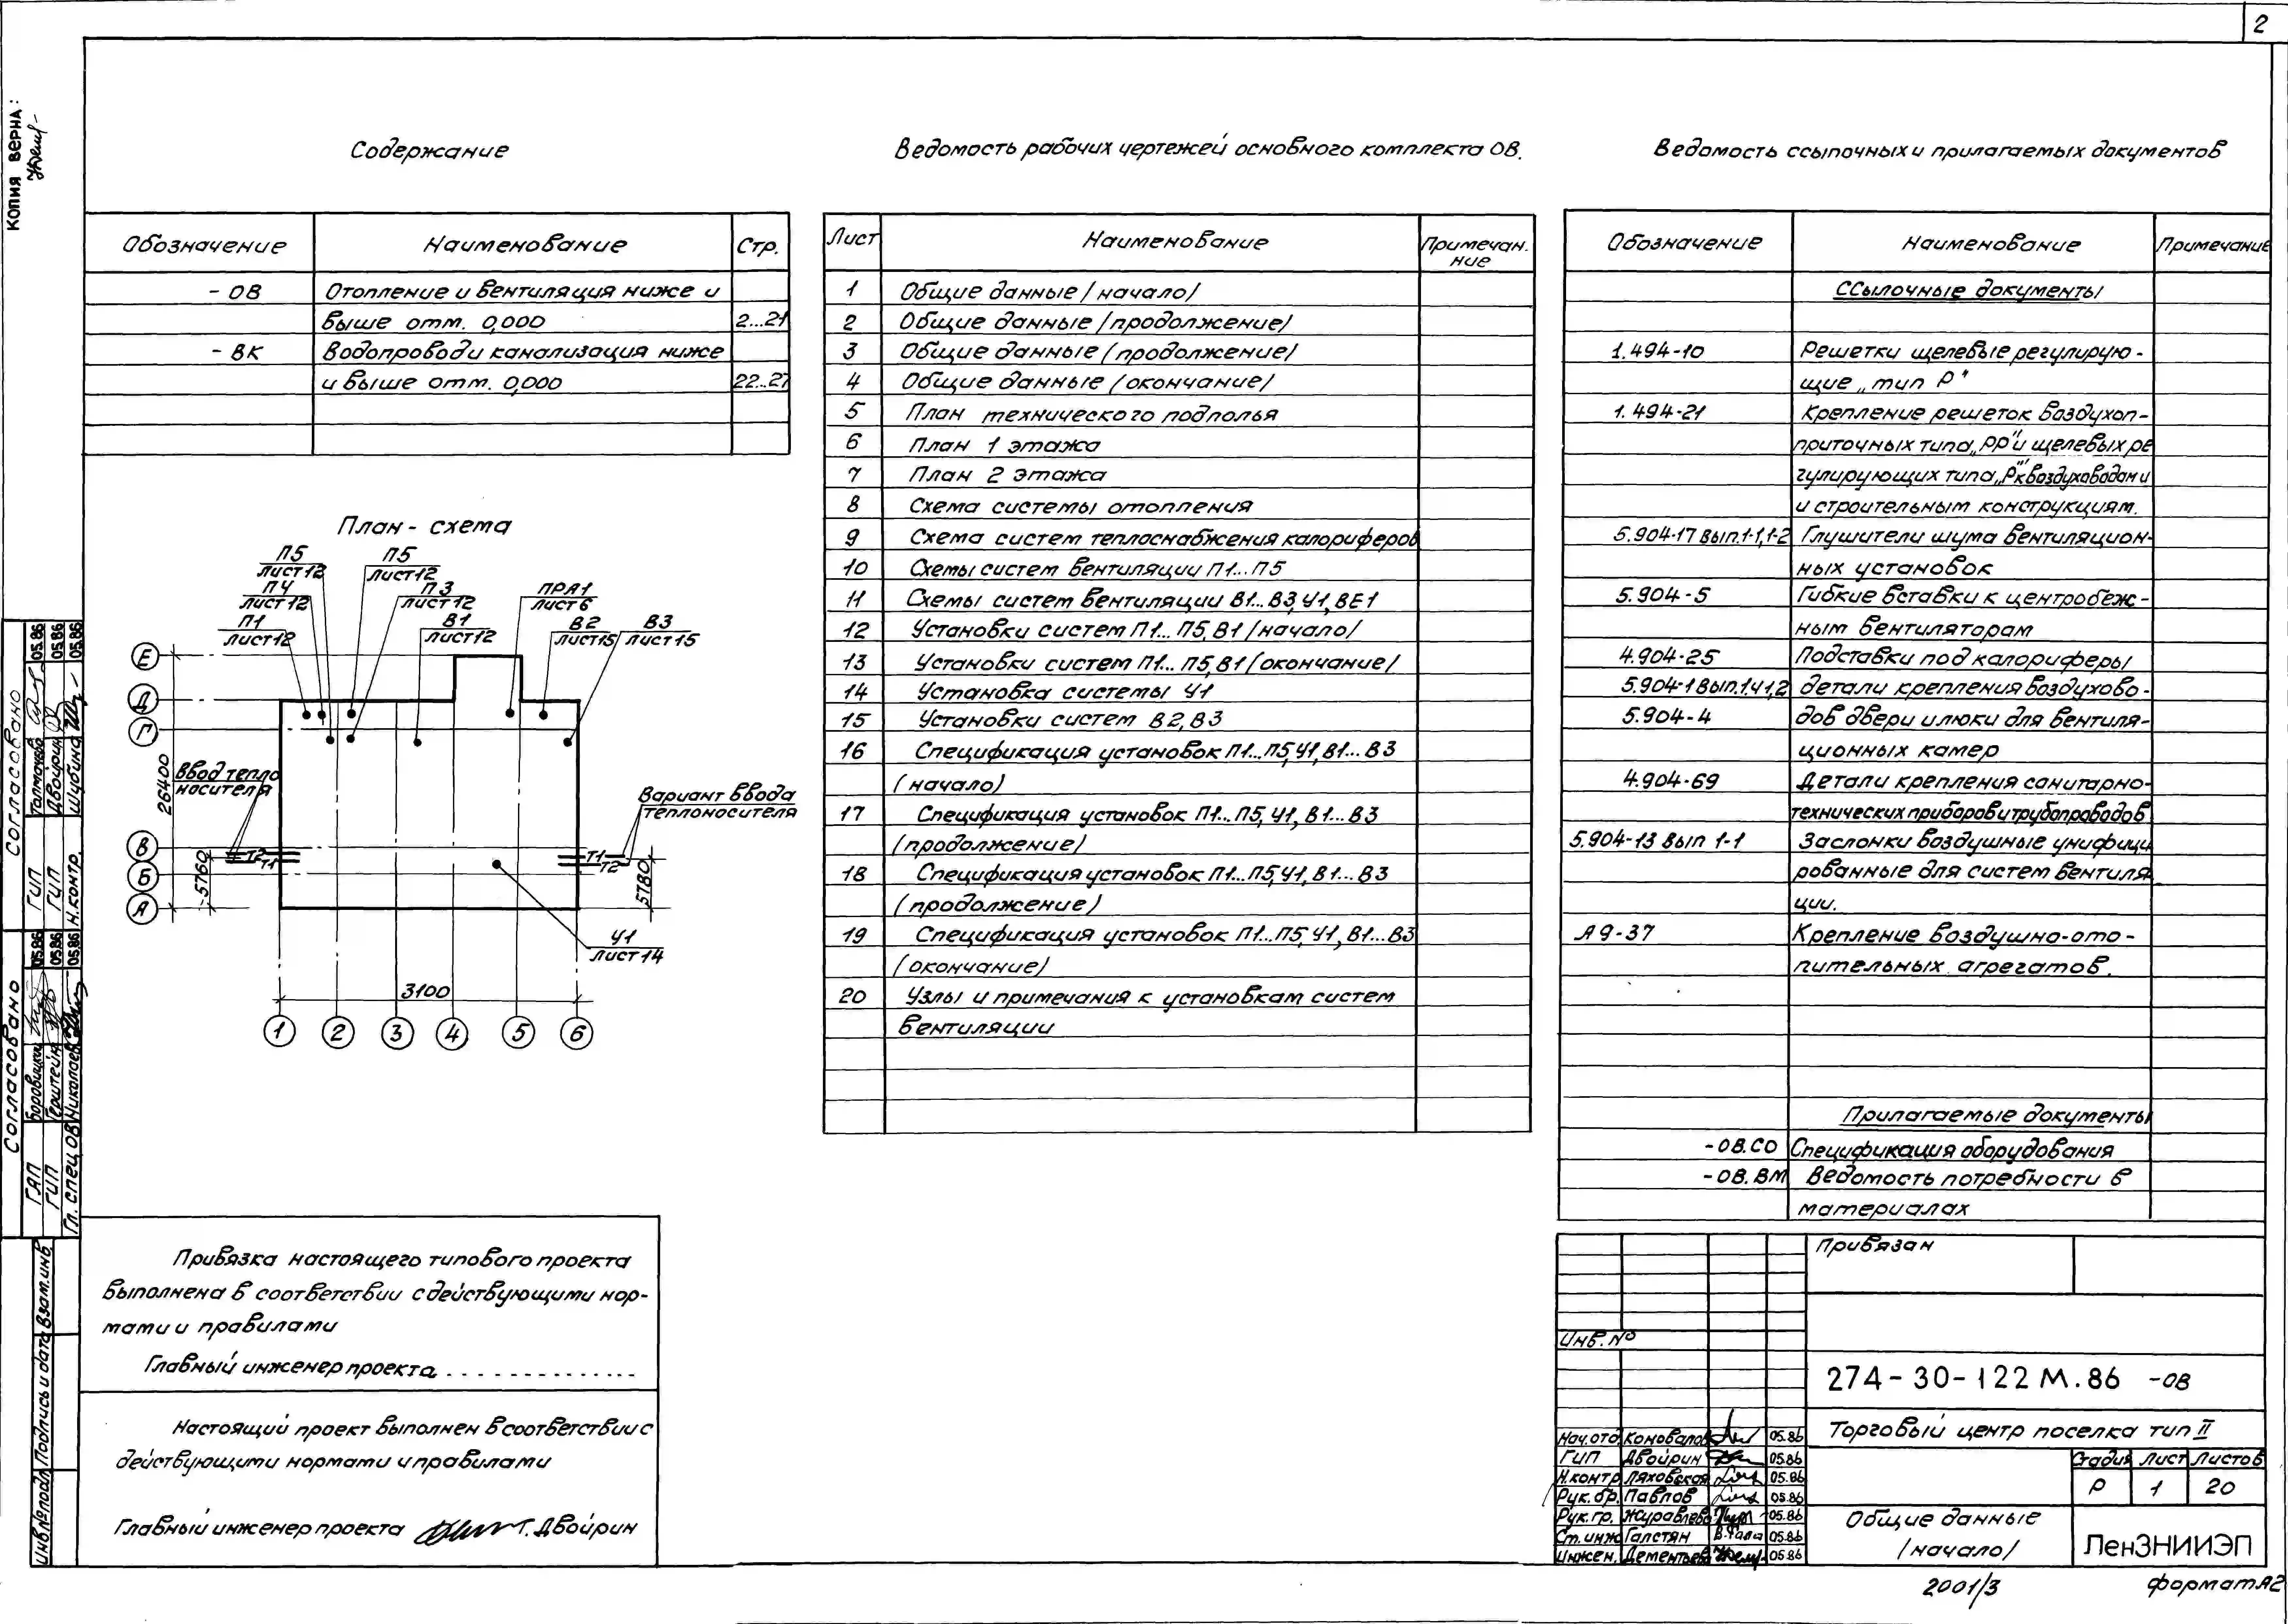 2
КОПИЯ ВЕРНА:
Содержание
Обозначение Наименование Стр.
- ОВ Отопление и вентиляция ниже и
выше отм. 0,000 2...21
- ВК Водопровод и канализация ниже
и выше отм. 0,000 22..27
План - схема
П5
лист 12
П5
лист 12
П4
лист 12
П3
лист 12
ПРА1
лист 6
П1
лист 12
В1
лист 12
В2
лист 15
В3
лист 15
Е
Д
Г
В
Б
А
26400
Ввод тепло
носителя
Вариант ввода
теплоносителя
Т2
Т1
Т1
Т2
5760
5780
У1
лист 14
3100
1 2 3 4 5 6
Ведомость рабочих чертежей основного комплекта ОВ.
Лист Наименование Примечан.
ние
1 Общие данные /начало/
2 Общие данные /продолжение/
3 Общие данные /продолжение/
4 Общие данные /окончание/
5 План технического подполья
6 План 1 этажа
7 План 2 этажа
8 Схема системы отопления
9 Схема систем теплоснабжения калориферов
10 Схемы систем вентиляции П1...П5
11 Схемы систем вентиляции В1...В3, У1, ВЕ1
12 Установки систем П1...П5, В1 /начало/
13 Установки систем П1...П5, В1 /окончание/
14 Установка системы У1
15 Установки систем В2, В3
16 Спецификация установок П1...П5, У1, В1...В3
/начало/
17 Спецификация установок П1...П5, У1, В1...В3
/продолжение/
18 Спецификация установок П1...П5, У1, В1...В3
/продолжение/
19 Спецификация установок П1...П5, У1, В1...В3
/окончание/
20 Узлы и примечания к установкам систем
вентиляции
Ведомость ссылочных и прилагаемых документов
Обозначение Наименование Примечание
Ссылочные документы
1.494-10 Решетки щелевые регулирую-
щие „тип Р"
1.494-21 Крепление решеток воздухоп-
приточных типа „РР" и щелевых ре
гулирующих типа „Р" к воздуховодам и
и строительным конструкциям.
5.904-17 вып.1-1,1-2 Глушители шума вентиляцион-
ных установок
5.904-5 Гибкие вставки к центробеж-
ным вентиляторам
4.904-25 Подставки под калориферы
5.904-1 вып.1ч1,2 детали крепления воздухово-
5.904-4 дов двери и люки для вентиля-
ционных камер
4.904-69 Детали крепления санитарно-
технических приборов и трубопроводов
5.904-13 вып 1-1 Заслонки воздушные унифици
рованные для систем вентиля
ции.
А9-37 Крепление воздушно-ото-
пительных агрегатов.
Прилагаемые документы
-ОВ.СО Спецификация оборудования
-ОВ.ВМ Ведомость потребности в
материалах
Привязка настоящего типового проекта
выполнена в соответствии с действующими нор-
мами и правилами
Главный инженер проекта ..............
Настоящий проект выполнен в соответствии с
действующими нормами и правилами
Главный инженер проекта Г. Двойрин
Согласовано
ГИП Толмачева 05.86
ГИП Двойрин 05.86
Н.контр. Шубина 05.86
Согласовано
ГАП Боровицки 05.86
ГИП 05.86
Гл. спец ОВ Николаев 05.86
Взам.инв
Подпись и дата
Инв№подл
Привязан
Инв.№
274-30-122 М.86 -ОВ
Торговый центр поселка тип II
Стадия Лист Листов
Р 1 20
Общие данные
/начало/
ЛенЗНИИЭП
Нач.отд Коновалов 05.86
ГИП Двойрин 05.86
Н.контр Ляховская 05.86
Рук.бр. Павлов 05.86
Рук.гр. Журавлева 05.86
Ст.инж Галстян 05.86
Инжен. Дементьева 05.86
2001/3
формат А2